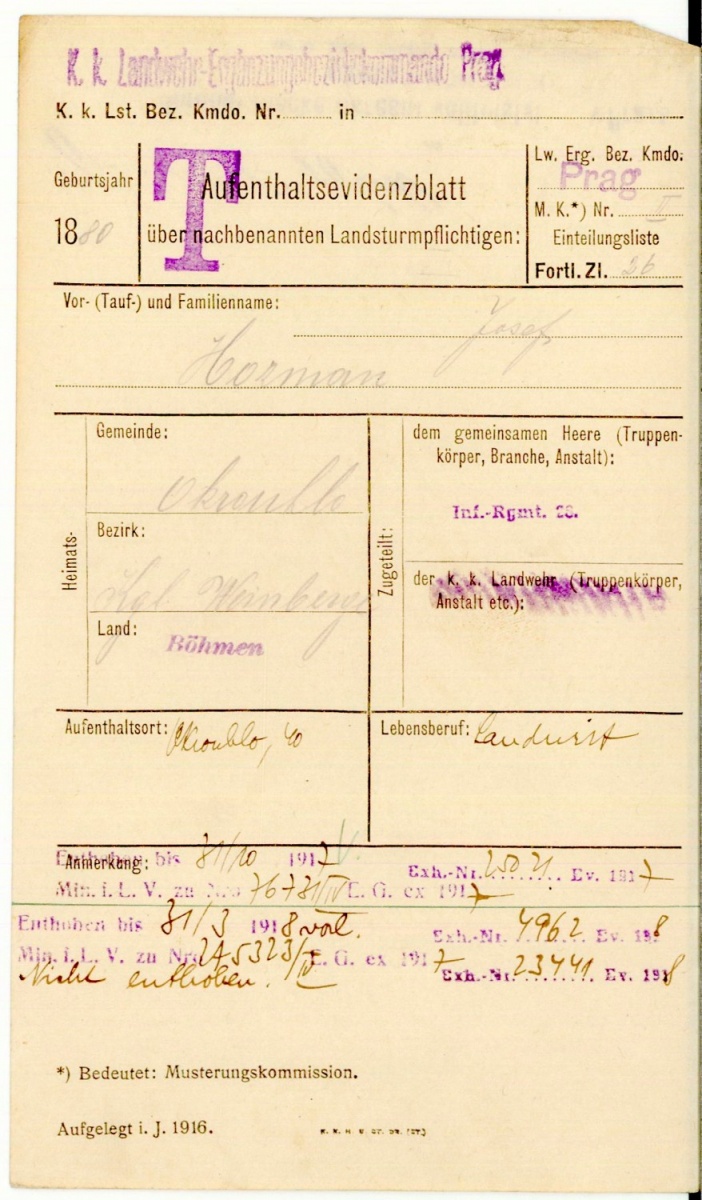 K. k. Landwehr-Ergänzungsbezirkskommando Prag
K. k. Lst. Bez. Kmdo. Nr. in
Geburtsjahr
1880
T
Aufenthaltsevidenzblatt
über nachbenannten Landsturmpflichtigen:
Lw. Erg. Bez. Kmdo:
Prag
M. K.*) Nr. I
Einteilungsliste
Fortl. Zl. 26
Vor- (Tauf-) und Familienname:
Josef
Horman
Heimats-
Gemeinde:
Okrouhlo
Bezirk:
Kgl. Weinberge
Land:
Böhmen
Zugeteilt:
dem gemeinsamen Heere (Truppen-
körper, Branche, Anstalt):
Inf.-Rgmt. 28.
der k. k. Landwehr (Truppenkörper,
Anstalt etc.):
Aufenthaltsort: Okrouhlo, 40
Lebensberuf: Landwirt
Anmerkung:
Enthoben bis 31/10 1917 Exh.-Nr. 25021 Ev. 1917
Min. i. L. V. zu Nro 76731/IV E. G. ex 1917
Enthoben bis 31/3 1918 vorl. Exh.-Nr. 4962 Ev. 1918
Min. i. L. V. zu Nro 245323/IV E. G. ex 1917
Nicht enthoben. Exh.-Nr. 23441 Ev. 1918
*) Bedeutet: Musterungskommission.
Aufgelegt i. J. 1916.